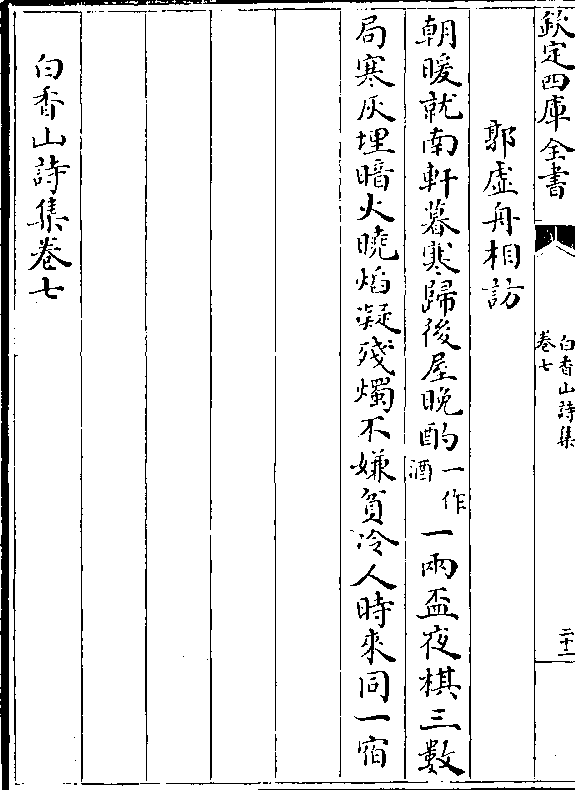 欽定四庫全書
白香山詩集
卷七
二十一
郭虛舟相訪
朝暖就南軒暮寒歸後屋晚酌一作酒一兩盃夜棋三數
局寒灰埋暗火曉焰凝殘燭不嫌貧冷人時來同一宿
白香山詩集卷七